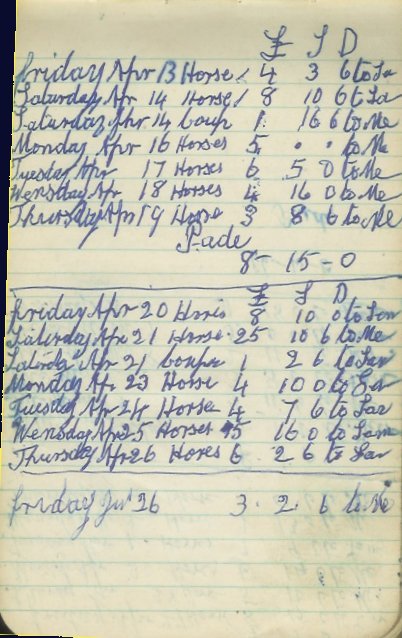 £ S D
friday Apr 13 Horse 4 3 6 to
Saturday Apr 14 Horse 8 10 6 to
Saturday Apr 14 Coup 1 16 6 to Me
Monday Apr 16 Horses 5 . . to Me
Tuesday Apr 17 Horses 6 5 0 to Me
Wensday Apr 18 Horses 4 16 0 to Me
Thursday Apr 19 Horse 3 8 6 to Me
Pade
8 - 15 - 0
£ S D
friday Apr 20 8 10 0 to
Saturday Apr 21 Horse 25 10 6 to Me
Apr 21 1 2 6 to
Monday Ap 23 Horse 4 10 0 to
Tuesday Apr 24 Horse 4 7 6 to
Wensday Apr 25 Horses 16 0 to
Thursday Apr 26 Hores 6 2 6 to
friday 26 3 . 2 . 6 to Me